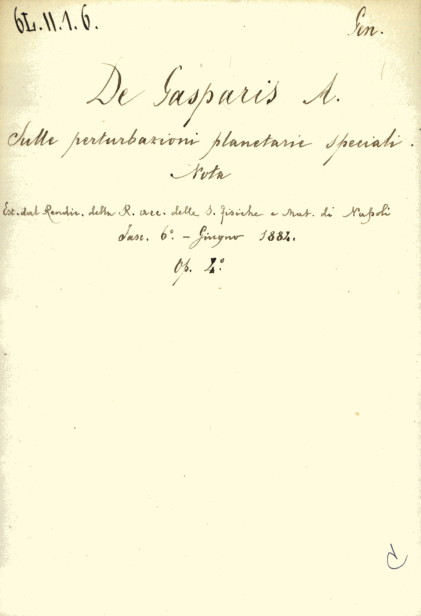 6L.II.1.6.
Gen.
De Gasparis A.
Sulle perturbazioni planetarie speciali.
Nota
Est. dal Rendic. della R. acc. delle S. fisiche e Mat. di Napoli
Fasc. 6° - Giugno 1884.
Op. 4°